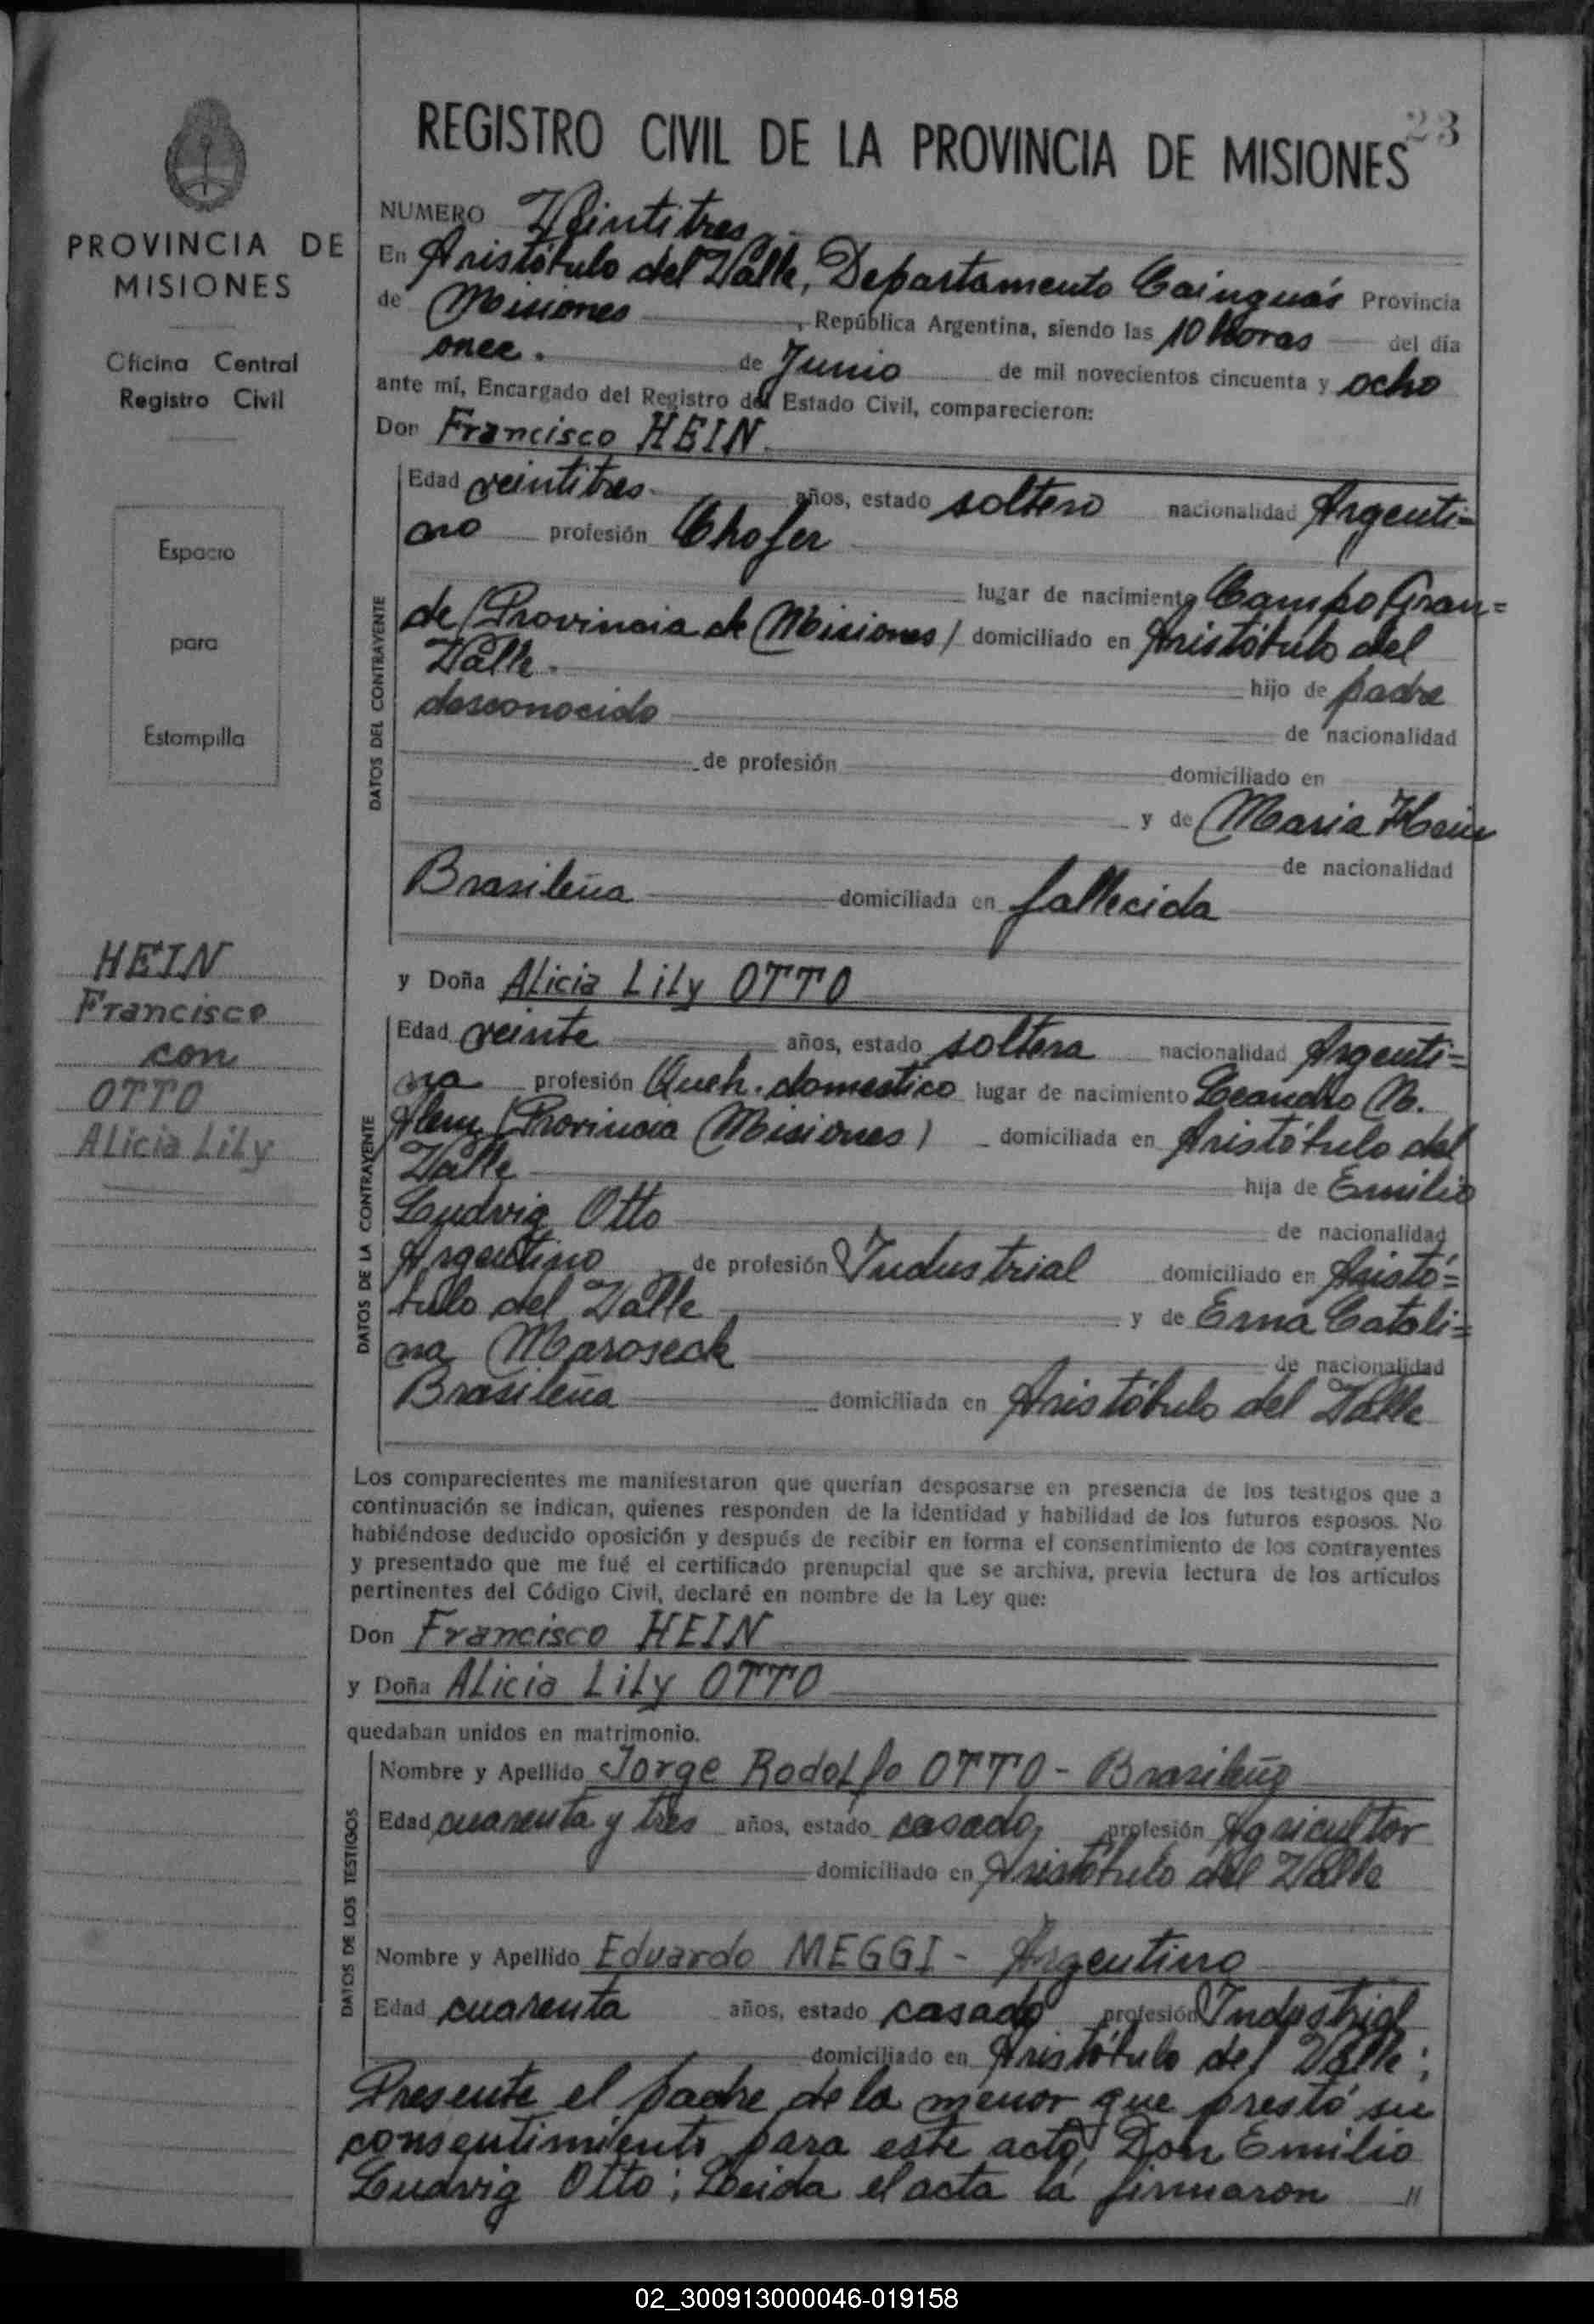 23
REGISTRO CIVIL DE LA PROVINCIA DE MISIONES
PROVINCIA DE
MISIONES
Oficina Central
Registro Civil
Espacio
para
Estampilla
HEIN
Francisco
con
OTTO
Alicia Lily
NUMERO Veintitres
En Aristóbulo del Valle, Departamento Cainguás Provincia
de Misiones, República Argentina, siendo las 10 horas del día
once. de Junio de mil novecientos cincuenta y ocho
ante mí, Encargado del Registro del Estado Civil, comparecieron:
Don Francisco HEIN.
DATOS DEL CONTRAYENTE
Edad veintitres años, estado soltero nacionalidad Argenti=
no profesión Chofer
lugar de nacimiento Campo Gran=
de (Provincia de Misiones) domiciliado en Aristóbulo del
Valle. hijo de padre
desconocido de nacionalidad
de profesión domiciliado en
y de Maria Hein
de nacionalidad
Brasileña domiciliada en fallecida
y Doña Alicia Lily OTTO
DATOS DE LA CONTRAYENTE
Edad veinte años, estado soltera nacionalidad Argenti=
na profesión Queh. domestico lugar de nacimiento Leandro N.
Alem (Provincia Misiones) domiciliada en Aristóbulo del
Valle hija de Emilio
Ludvig Otto de nacionalidad
Argentino de profesión Industrial domiciliado en Aristó=
bulo del Valle y de Erna Catali=
na Maroseck de nacionalidad
Brasileña domiciliada en Aristóbulo del Valle
Los comparecientes me manifestaron que querían desposarse en presencia de los testigos que a
continuación se indican, quienes responden de la identidad y habilidad de los futuros esposos. No
habiéndose deducido oposición y después de recibir en forma el consentimiento de los contrayentes
y presentado que me fué el certificado prenupcial que se archiva, previa lectura de los artículos
pertinentes del Código Civil, declaré en nombre de la Ley que:
Don Francisco HEIN
y Doña Alicia Lily OTTO
quedaban unidos en matrimonio.
DATOS DE LOS TESTIGOS
Nombre y Apellido Jorge Rodolfo OTTO - Brasileño
Edad cuarenta y tres años, estado casado, profesión Agricultor
domiciliado en Aristóbulo del Valle
Nombre y Apellido Eduardo MEGGI - Argentino
Edad cuarenta años, estado casado profesión Industrial
domiciliado en Aristóbulo del Valle;
Presente el padre de la menor que prestó su
consentimiento para este acto, Don Emilio
Ludvig Otto; Leida el acta la firmaron "
02_300913000046-019158